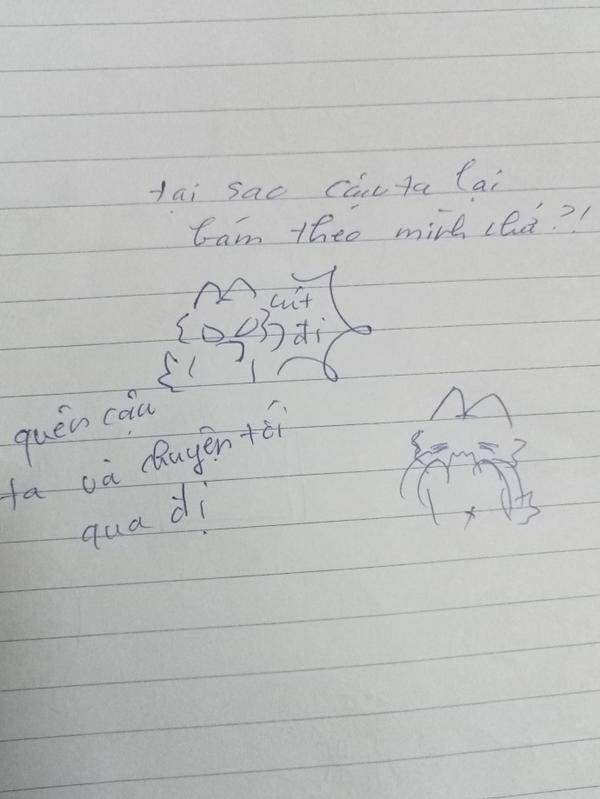 tại sao cậu ta lại
bám theo mình chứ?!
cút
đi
quên cậu
ta và chuyện tối
qua đi